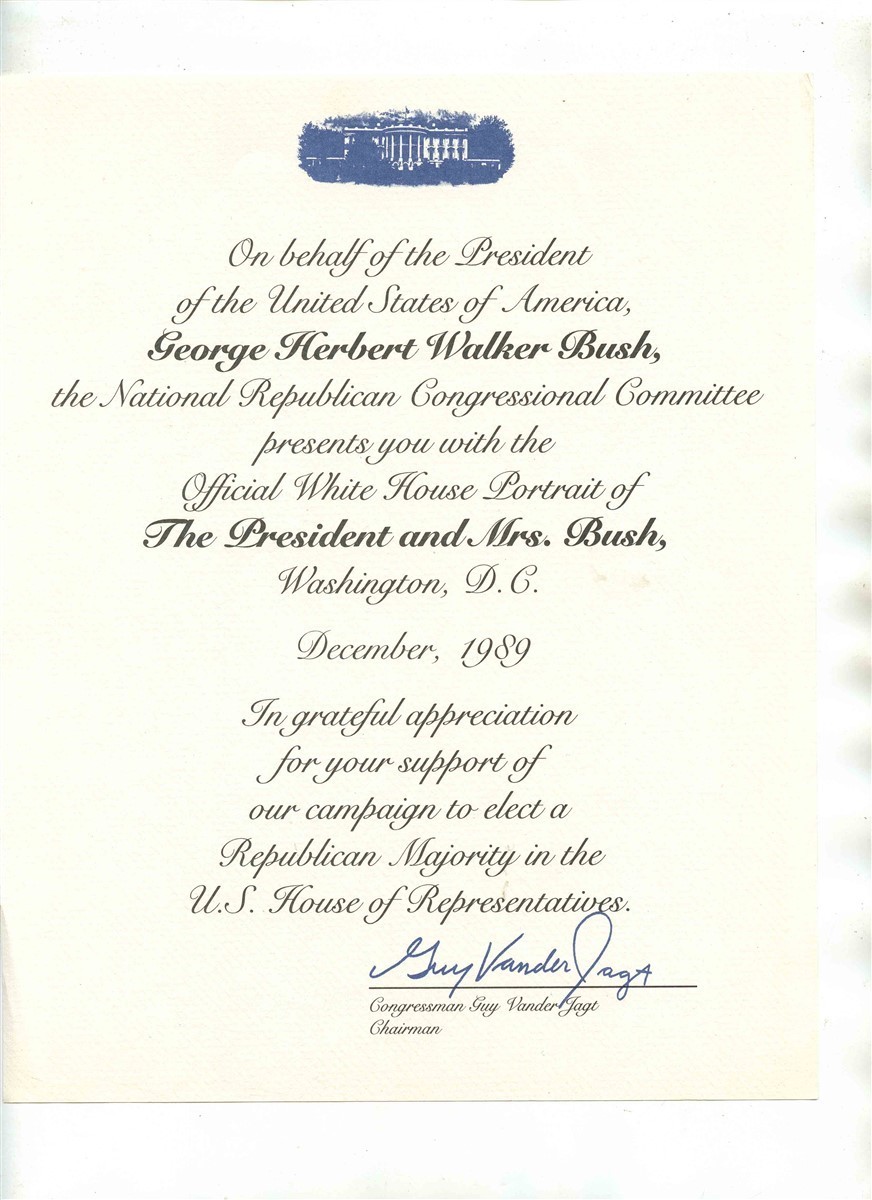 On behalf of the President
of the United States of America,
George Herbert Walker Bush,
the National Republican Congressional Committee
presents you with the
Official White House Portrait of
The President and Mrs. Bush,
Washington, D.C.
December, 1989
In grateful appreciation
for your support of
our campaign to elect a
Republican Majority in the
U.S. House of Representatives.
Guy Vander Jagt
Congressman Guy Vander Jagt
Chairman